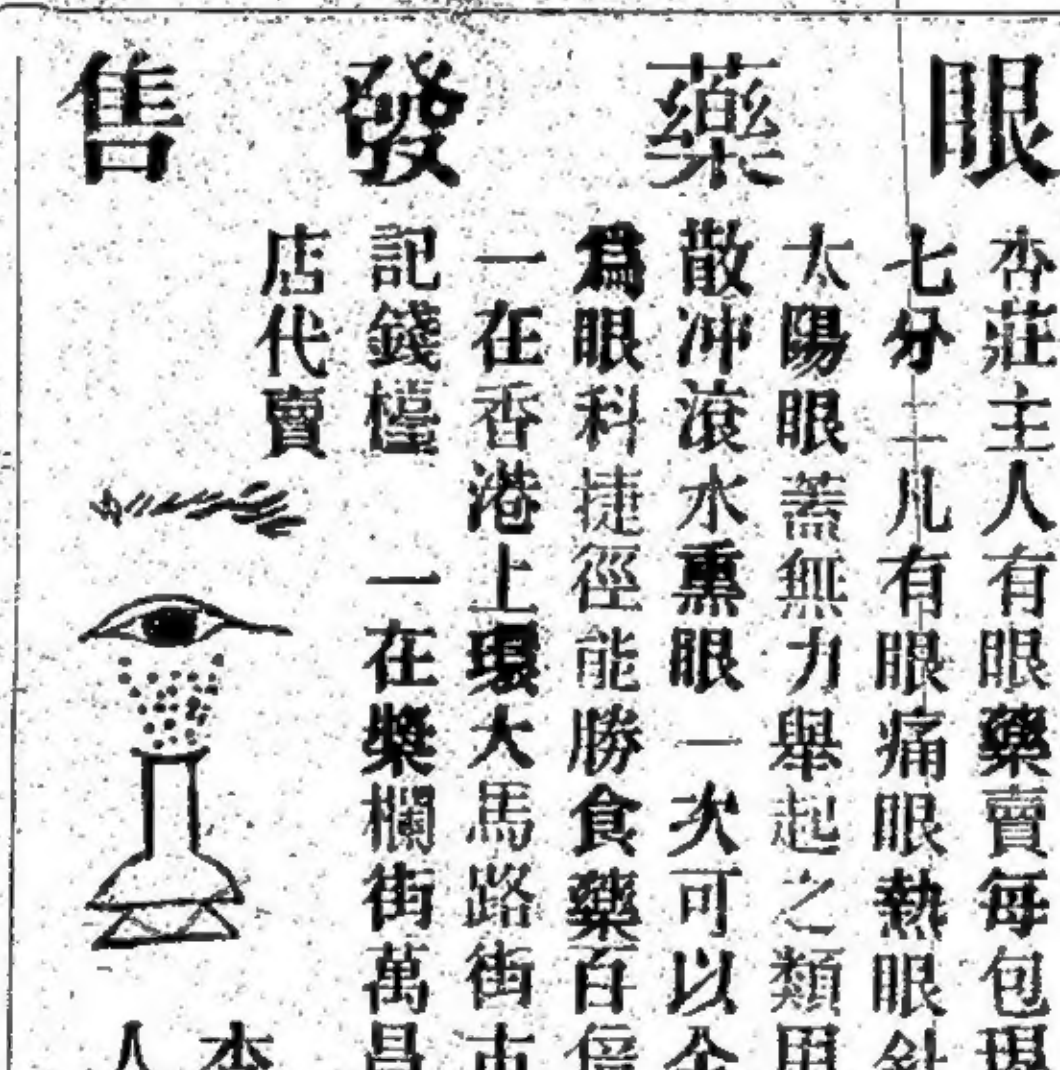 眼藥發售
杏莊主人有眼藥賣每包現
七分二凡有眼痛眼熱眼針
太陽眼蓋無力舉起之類用
散冲滾水熏眼一次可以全
爲眼科捷徑能勝食藥百倍
一在香港上環大馬路街市
記錢檯　一在槳欄街萬昌
店代賣
杏
人